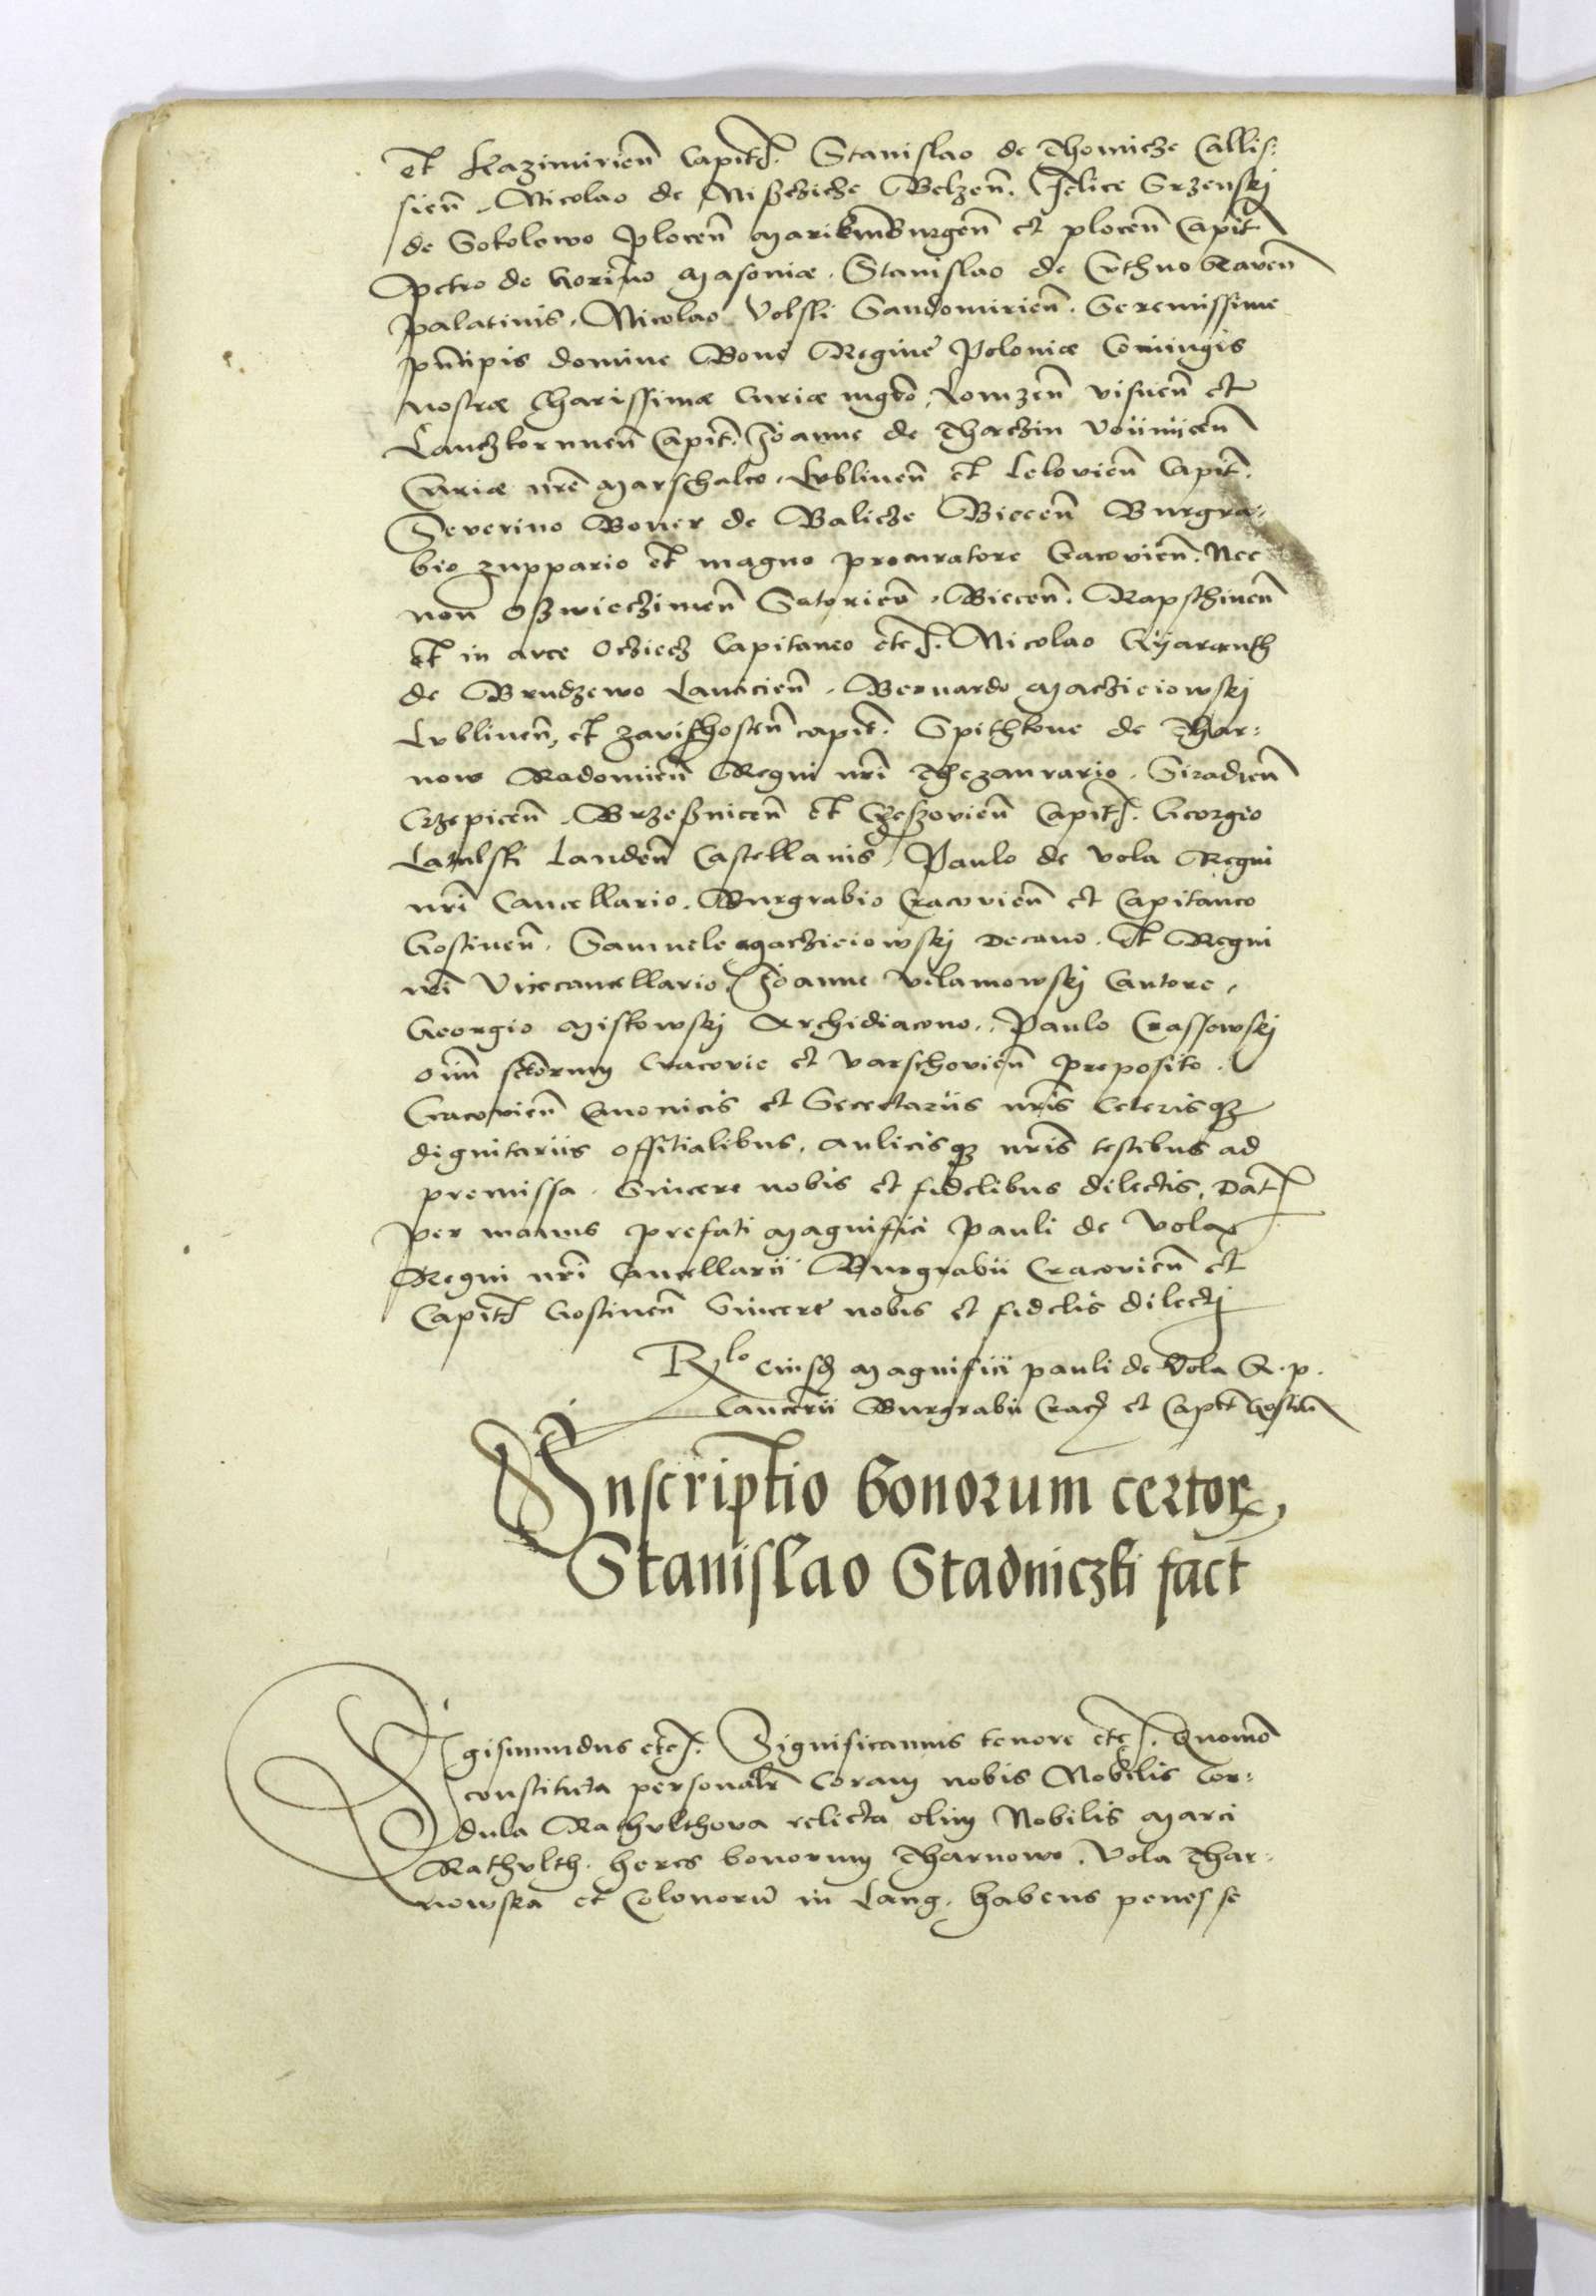 et Kazimirien̄ Capit. Stanislao de Thomicze Callis:
sien̄. Nicolao de Nißchicze Belzen̄. Felice Srzenskj
de Sokolowo Plocen̄ Marikmburgen̄ et plocen̄ Capit
Petro de Gorino Masoniæ. Stanislao de Cuthno Raven̄
palatinis. Nicolao Volski Sandomirien̄. Serenissime
pn̄cipis domine Bone Regine Poloniæ Coniugis
nostræ Charissimæ Curiæ mgro, Lomzen̄ visnen̄ et
Lanczkorunen̄ Capit. Joanne de Thaczin Voiinicen̄
Curiæ nrē Marschalco. Lublinen̄ et Lelovien̄ Capit.
Severino Boner de Balicze Biecen̄ Burgra:
bio zuppario et magno procuratore Cracovien̄. Nec
non Oßwieczimen̄ Satorien̄. Biecen̄. Rapschinen̄
et in arce Ocziecz Capitaneo etc. Nicolao
de Brudzewo Lancicien̄. Bernardo Maczieiowskj
Lublinen̄, et zavischosten̄ capit. Spithkone de Thar:
now Radomien̄ Regni nrī Thezaurario. Siradien̄
Crzepicen̄. Brzeßnicen̄ et Capit. Georgio
Latalski Landen̄ Castellanis, Paulo de Vola Regni
nrī Cancellario. Burgrabio Cracovien̄ et Capitaneo
Gostinen̄. Samuele Macziciowskj Decano. et Regni
nrī Vicecancellario, Joanne Vilamowskj Cantore,
Georgio Miskowskj Archidiacono., Paulo Crassowskj
oim̄ sctorum Cracovie et Varschovien̄ preposito.
Cracovien̄ Canonicis et Secretariis nrīs Ceterisq3
dignitariis offitialibus, aulicisq3 nrīs testibus ad
premissa. Sincere nobis et fidelibus dilectis, Dat
per manus prefati Magnifici Pauli de Vola
Regni nrī Cancellarii Burgrabii Cracovien̄ et
Capit Gostinen̄ Sincere nobis et fidelis dilectj
Rlo eiusd Magnificii pauli de Vola R. p.
Cancerii Burgrabii Crac et Capit Gostin̄
Inscriptio bonorum certor,
Stanislao Stadniczki fact
Sigismundus etc. Significamus tenore etc. Quomō
constituta personalr̄ Coram nobis Nobilis Cor:
dula Rathulthova relicta olim Nobilis Marci
Rathulth. heres bonorum Tharnowo. Vola Thar:
nowska et Colonorū in Lang. habens penes se